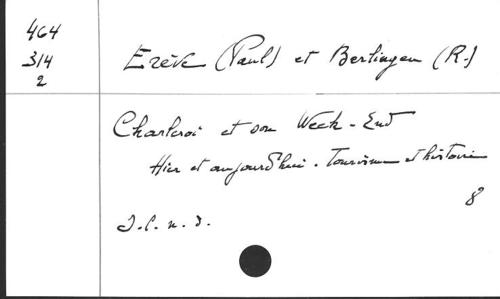 464
314
2
Erève (Paul) et Berlingen (R.)
Charleroi et son Week-End
Hier et aujourd'hui. Tourisme et histoire
8
S.l.n.d.